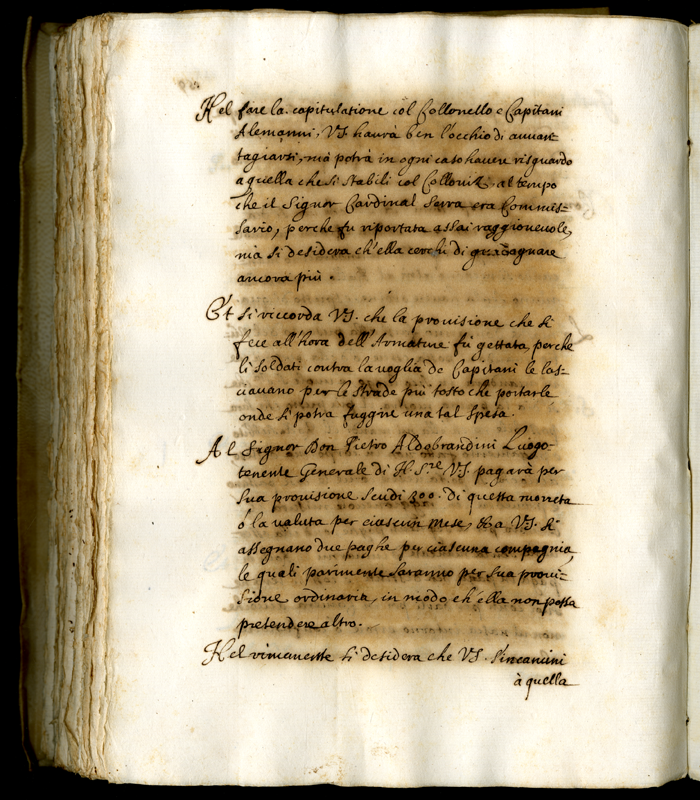 Nel fare la capitulatione col Collonello e Capitani
Alemanni, VS. haurà ben l'occhio di auuan=
tagiarsi, mà potrà in ogni caso hauere risguardo
a quella che si stabilì col Collonit, al tempo
che il Signor Cardinal Serra era Commis=
sario, perche fu riportata assai raggioneuole,
mà si desidera ch'ella cerchi di guadagnare
ancora più.
Et si riccorda VS. che la prouisione che si
fece all'hora dell'Armature fù gettata, perche
li soldati contra la uoglia de Capitani le las=
ciauano per le strade più tosto che portarle
onde si potrà fuggire una tal spesa.
Al Signor Don Pietro Aldobrandini Luogo=
tenente Generale di N. S.re VS. pagarà per
sua prouisione Scudi 300. di questa moneta
ò la ualuta per ciascun mese, & a VS. si
assegnano due paghe per ciascuna compagnia,
le quali parimente saranno per sua proui=
sione ordinaria, in modo ch'ella non possa
pretendere altro.
Nel rimanente si desidera che VS. s'incamini
à quella